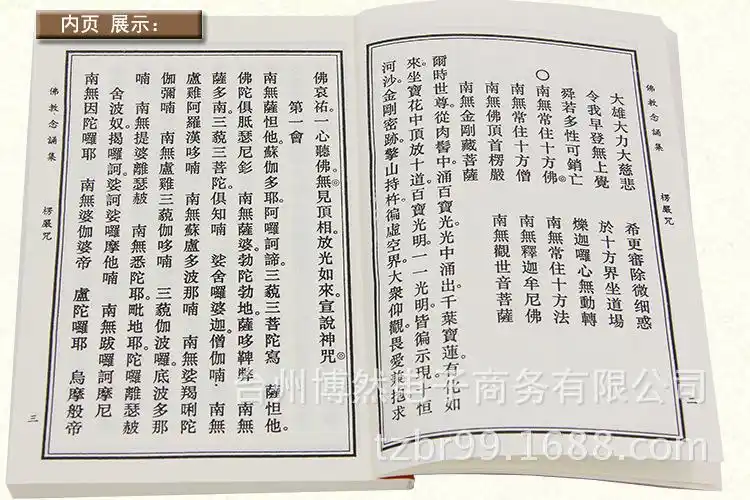 内页 展示：
佛教念誦集 楞嚴咒
大雄大力大慈悲 希更審除微细惑
令我早登無上覺 於十方界坐道場
舜若多性可銷亡 爍迦囉心無動轉
○南無常住十方佛◎ 南無常住十方法
南無常住十方僧 南無釋迦牟尼佛
南無佛頂首楞嚴 南無觀世音菩薩
南無金剛藏菩薩
爾時世尊從肉髻中。涌百寶光。光中涌出千葉寶蓮。有化如
來。坐寶花中。頂放十道。百寶光明。一一光明。皆徧示現。十恒
河沙金剛密跡。擎山持杵。徧虛空界。大衆仰觀。畏愛兼抱。求
佛哀祐。一心聽佛。無見頂相。放光如來。宣說神咒。◎
第一會
南無薩怛他。蘇伽多耶。阿囉訶諦。三藐三菩陀寫。 薩怛他。
佛陀俱胝瑟尼釤。 南無薩婆。勃陀勃地。薩哆鞞弊。 南無
薩多南。三藐三菩陀。俱知喃。 娑舍囉婆迦。僧伽喃。 南無
盧雞阿羅漢哆喃。 南無蘇盧多波那喃。 南無娑羯唎陀
伽彌喃。 南無盧雞三藐伽哆喃。 三藐伽波囉。底波多那
喃。 南無提婆離瑟赧。 南無悉陀耶。毗地耶。陀囉離瑟赧
舍波奴。揭囉訶。娑訶娑囉摩他喃。 南無跋囉訶摩尼
南無因陀囉耶 南無婆伽婆帝 盧陀囉耶 烏摩般帝
佛教念誦集 楞嚴咒 三
台州博然电子商务有限公司
tzbr99.1688.com